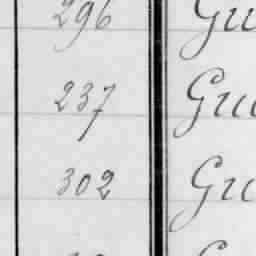 296 Gu
237 Gu
302 Gu